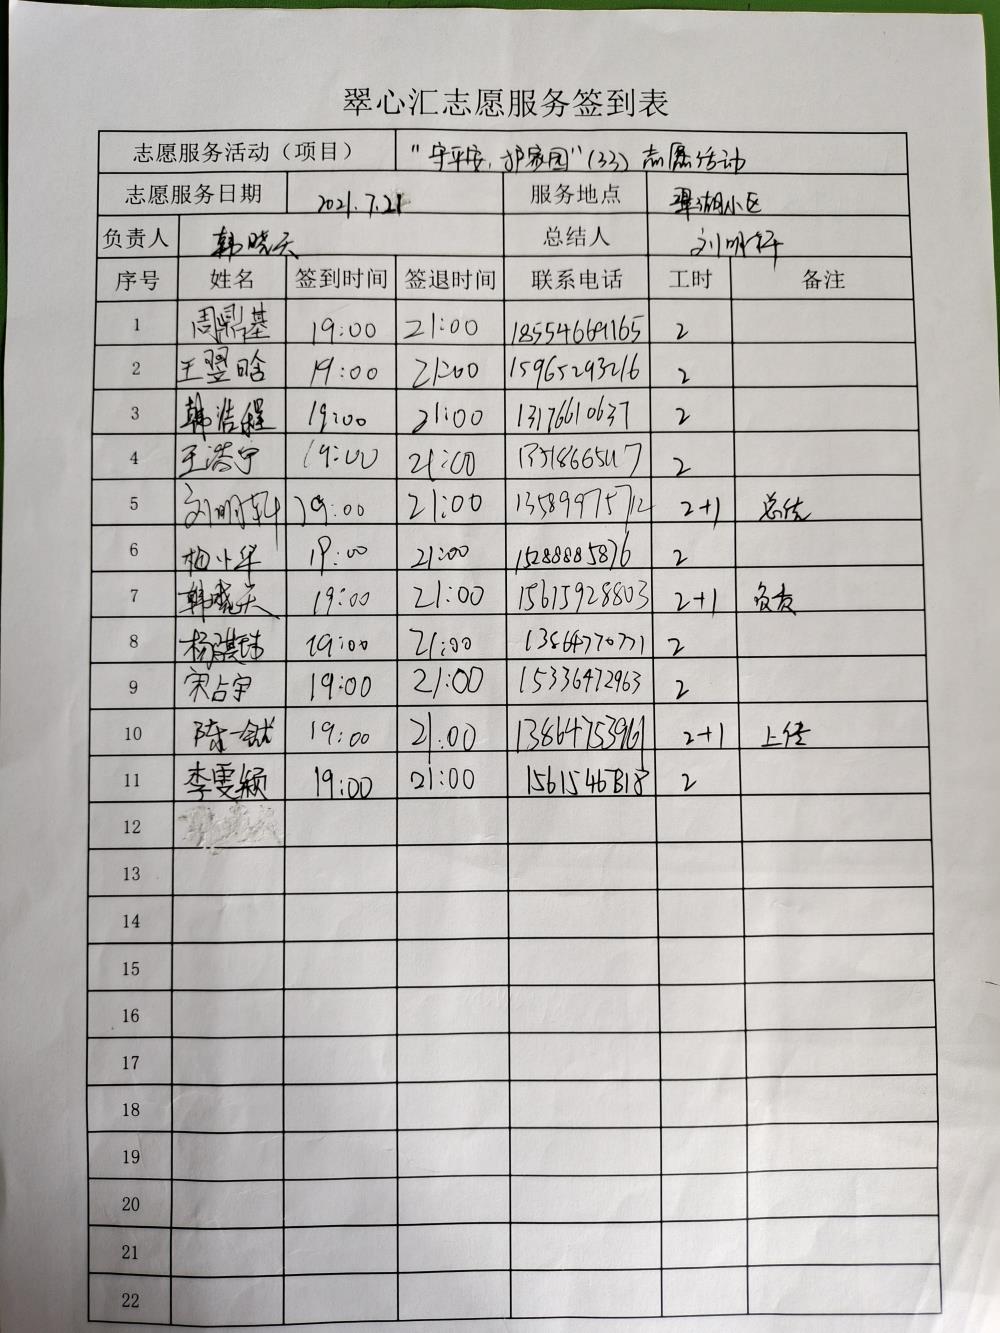 翠心汇志愿服务签到表
志愿服务活动（项目） “守平安，护家园”（33）志愿活动
志愿服务日期 2021.7.21 服务地点 翠湖小区
负责人 韩晓天 总结人 刘明轩
序号 姓名 签到时间 签退时间 联系电话 工时 备注
1 周鼎基 19:00 21:00 18554669165 2
2 王翌晗 19:00 21:00 15965293216 2
3 韩浩程 19:00 21:00 13176610637 2
4 王浩宁 19:00 21:00 2
5 刘明轩 19:00 21:00 13589975712 2+1 总结
6 柏小华 19:00 21:00 15288885876 2
7 韩晓天 19:00 21:00 15615928803 2+1 负责
8 杨淇玮 19:00 21:00 13864770771 2
9 宋占宇 19:00 21:00 15336472963 2
10 陈一 19:00 21:00 13864753961 2+1 上传
11 李雯颖 19:00 21:00 2
12
13
14
15
16
17
18
19
20
21
22